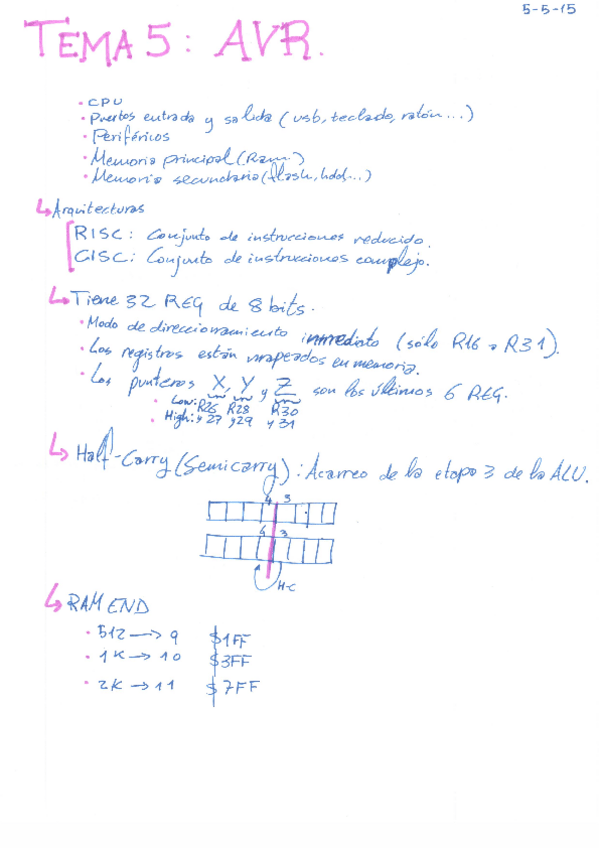 5-5-15
TEMA 5: AVR.
• CPU
• Puertos entrada y salida (usb, teclado, ratón...)
• Periféricos
• Memoria principal (Ram.)
• Memoria secundaria (flash, hdd...)
↳ Arquitecturas
RISC: Conjunto de instrucciones reducido.
CISC: Conjunto de instrucciones complejo.
↳ Tiene 32 REG de 8 bits.
• Modo de direccionamiento inmediato (sólo R16 a R31).
• Los registros están mapeados en memoria.
• Los punteros X, Y y Z son los últimos 6 REG.
• Low: R26 R28 R30
• High: y 27 y 29 y 31
↳ Half-Carry (Semicarry): Acarreo de la etapa 3 de la ALU.
4 3
4 3
H-C
↳ RAM END
• 512 → 9 $1FF
• 1K → 10 $3FF
• 2K → 11 $7FF